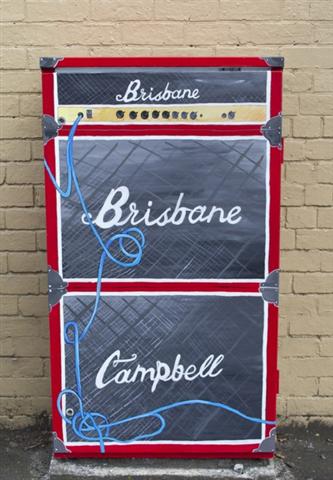 Brisbane
Brisbane
Campbell